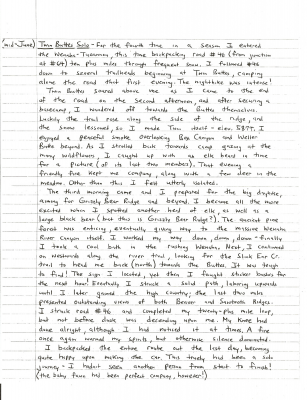 (mid-June) Twin Buttes Solo - For the fourth time in a season I entered
the Wenaha-Tucannon, this time backpacking road #46 (from junction
at #64) ten plus miles through frequent snow. I followed #46
down to several trailheads beginning at Twin Buttes, camping
alone the road that first evening. The nightlike was intense!
Twin Buttes soared above me as I came to the end
of the road on the second afternoon, and after securing a
basecamp, I wandered off towards the Buttes themselves.
Luckily the trail rose along the side of the ridge, and
the snow lessened, so I made Twin itself - elev. 5377. I
enjoyed a peaceful smoke overlooking Box Canyon and Weller
Butte beyond. As I strolled back towards camp gazing at the
many wildflowers, I caught up with an elk herd in time
for a picture (of its last two members). That evening a
friendly fire kept me company, along with a few deer in the
meadow. Other than this I felt utterly isolated.
The third morning came and I prepared for the big dayhike,
aiming for Grizzly Bear Ridge and beyond. I became all the more
excited when I spotted another herd of elk, as well as a
large black bear (but this is Grizzly Bear Ridge?). The ancient pine
forest was enticing, eventually giving way to the massive Wenaha
River Canyon itself. I worked my way down, down, down - finally
I took a cool bath in the rushing Wenaha. Next, I continued
on westwards along the river trail, looking for the Slick Ear Cr.
trail to head me back (north) towards the Buttes. It was tough
to find! The sign I located, yet then I fought sticker bushes for
the next hour. Eventually I struck a solid path, laboring upwards
until I later gained the high country; the last two miles
presented outstanding views of both Beaver and Sawtooth Ridges.
I struck road #46 and completed my twenty-plus mile loop,
but not before dusk was descending upon me. My knee had
done alright, although I had noticed it at times. A fire
once again warmed my spirits, but otherwise silence dominated.
I backpacked the entire route out the last day, becoming
quite happy upon making the car. This truly had been a solo
journey - I hadn't seen another person from start to finish!
(the baby fawn had been perfect company, however!)